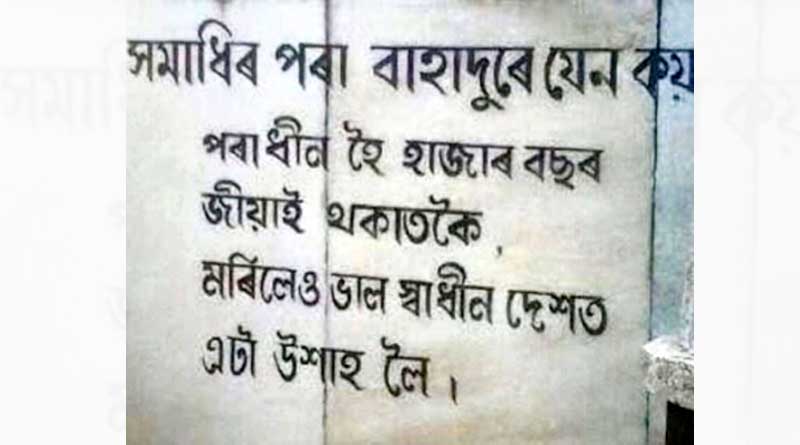 সমাধিৰ পৰা বাহাদুৰে যেন কয়
পৰাধীন হৈ হাজাৰ বছৰ
জীয়াই থকাতকৈ,
মৰিলেও ভাল স্বাধীন দেশত
এটা উশাহ লৈ।